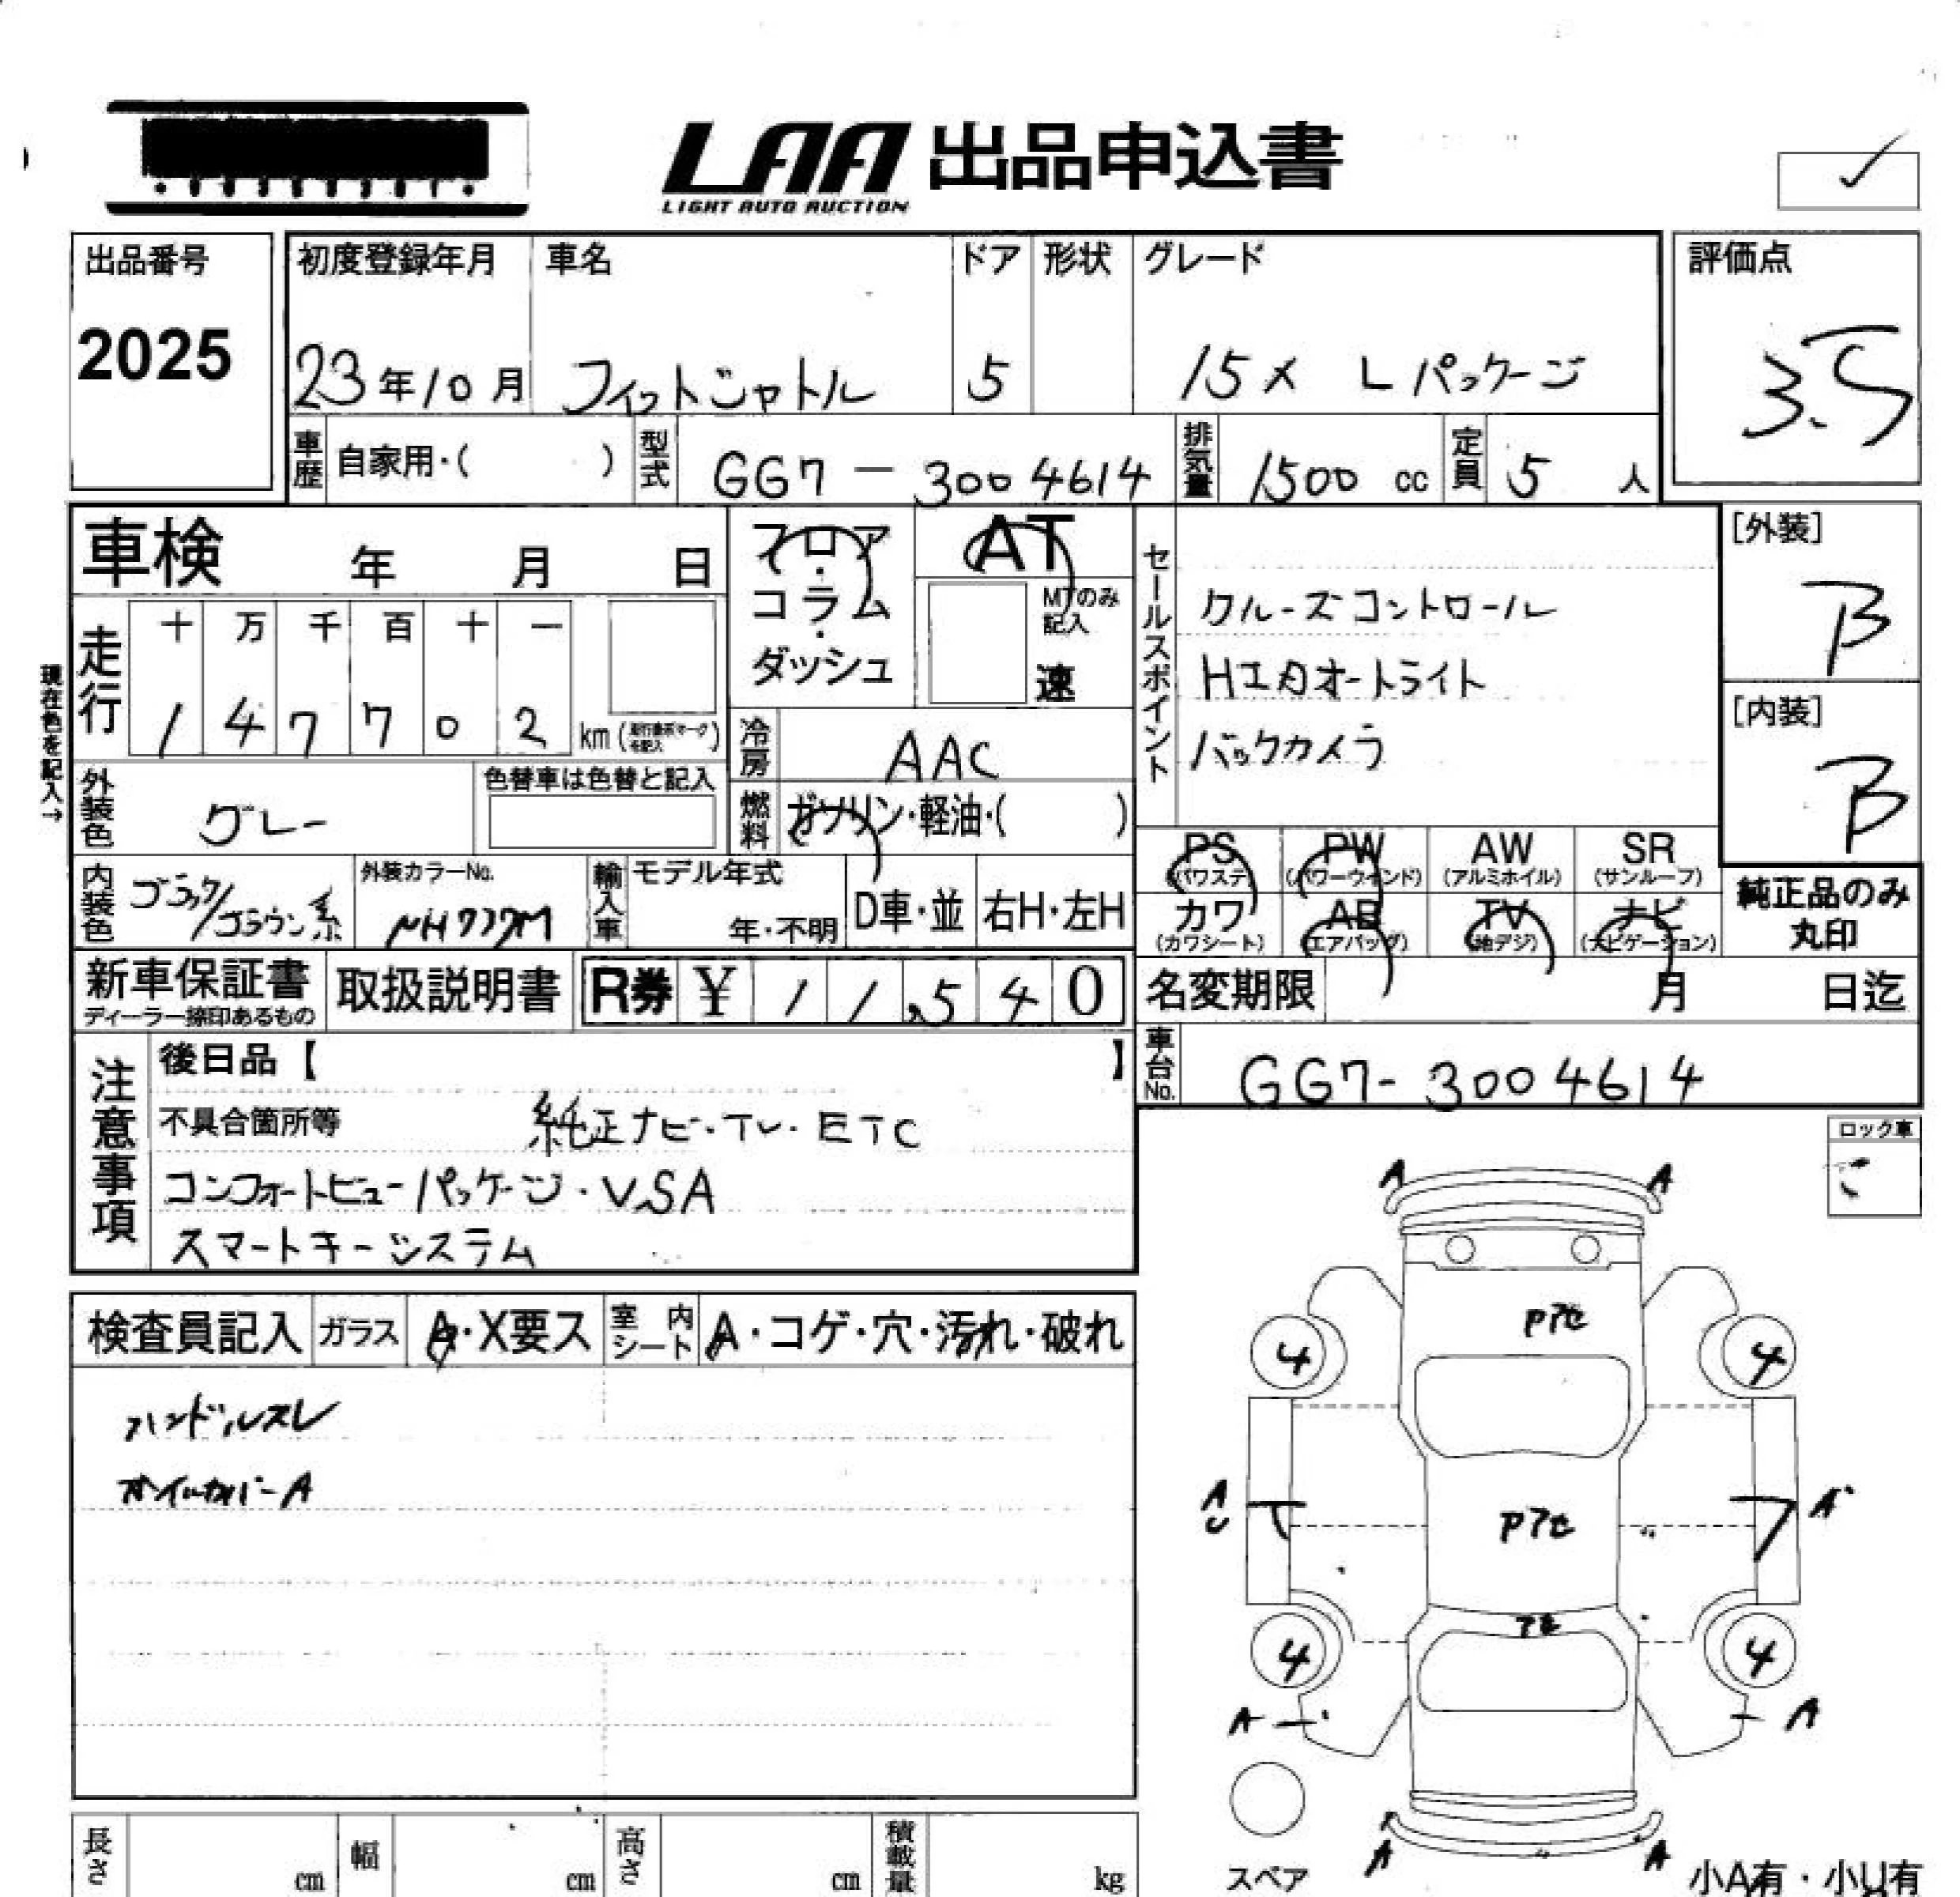 LAA 出品申込書
LIGHT AUTO AUCTION
出品番号
2025
初度登録年月 車名 ドア 形状 グレード
23年10月 フィットシャトル 5 15X Lパッケージ
評価点
3.5
車歴 自家用・( ) 型式 GG7-3004614 排気量 1500 cc 定員 5 人
車検 年 月 日
フロア・コラム・ダッシュ
AT
MTのみ記入
速
走行 十 万 千 百 十 一
1 4 7 7 0 2 km
現在色を記入→
冷房 AAC
外装色 グレー
色替車は色替と記入
燃料 ガソリン・軽油・( )
内装色 ブラック/ブラウン系
外装カラーNo.
NH737M
輸入車 モデル年式
年・不明 D車・並 右H・左H
セールスポイント
クルーズコントロール
HIDオートライト
バックカメラ
[外装]
B
[内装]
B
PS PW AW SR
(パワステ) (パワーウィンド) (アルミホイル) (サンルーフ)
カワ AB TV ナビ
(カワシート) (エアバッグ) (地デジ) (ナビゲーション)
純正品のみ
丸印
新車保証書
ディーラー捺印あるもの
取扱説明書 R券 ¥ 11,540
名変期限 月 日迄
車台No. GG7-3004614
注意事項
後日品【 】
不具合箇所等 純正ナビ・TV・ETC
コンフォートビューパッケージ・VSA
スマートキーシステム
ロック車
検査員記入 ガラス A・X要ス 室内シート A・コゲ・穴・汚れ・破れ
ハンドルスレ
オイルカバーA
A A
Pアセ
4 4
A
U
A
Pアセ
アセ
4 4
A A
A A
スペア
小A有・小U有
長さ cm 幅 cm 高さ cm 積載量 kg